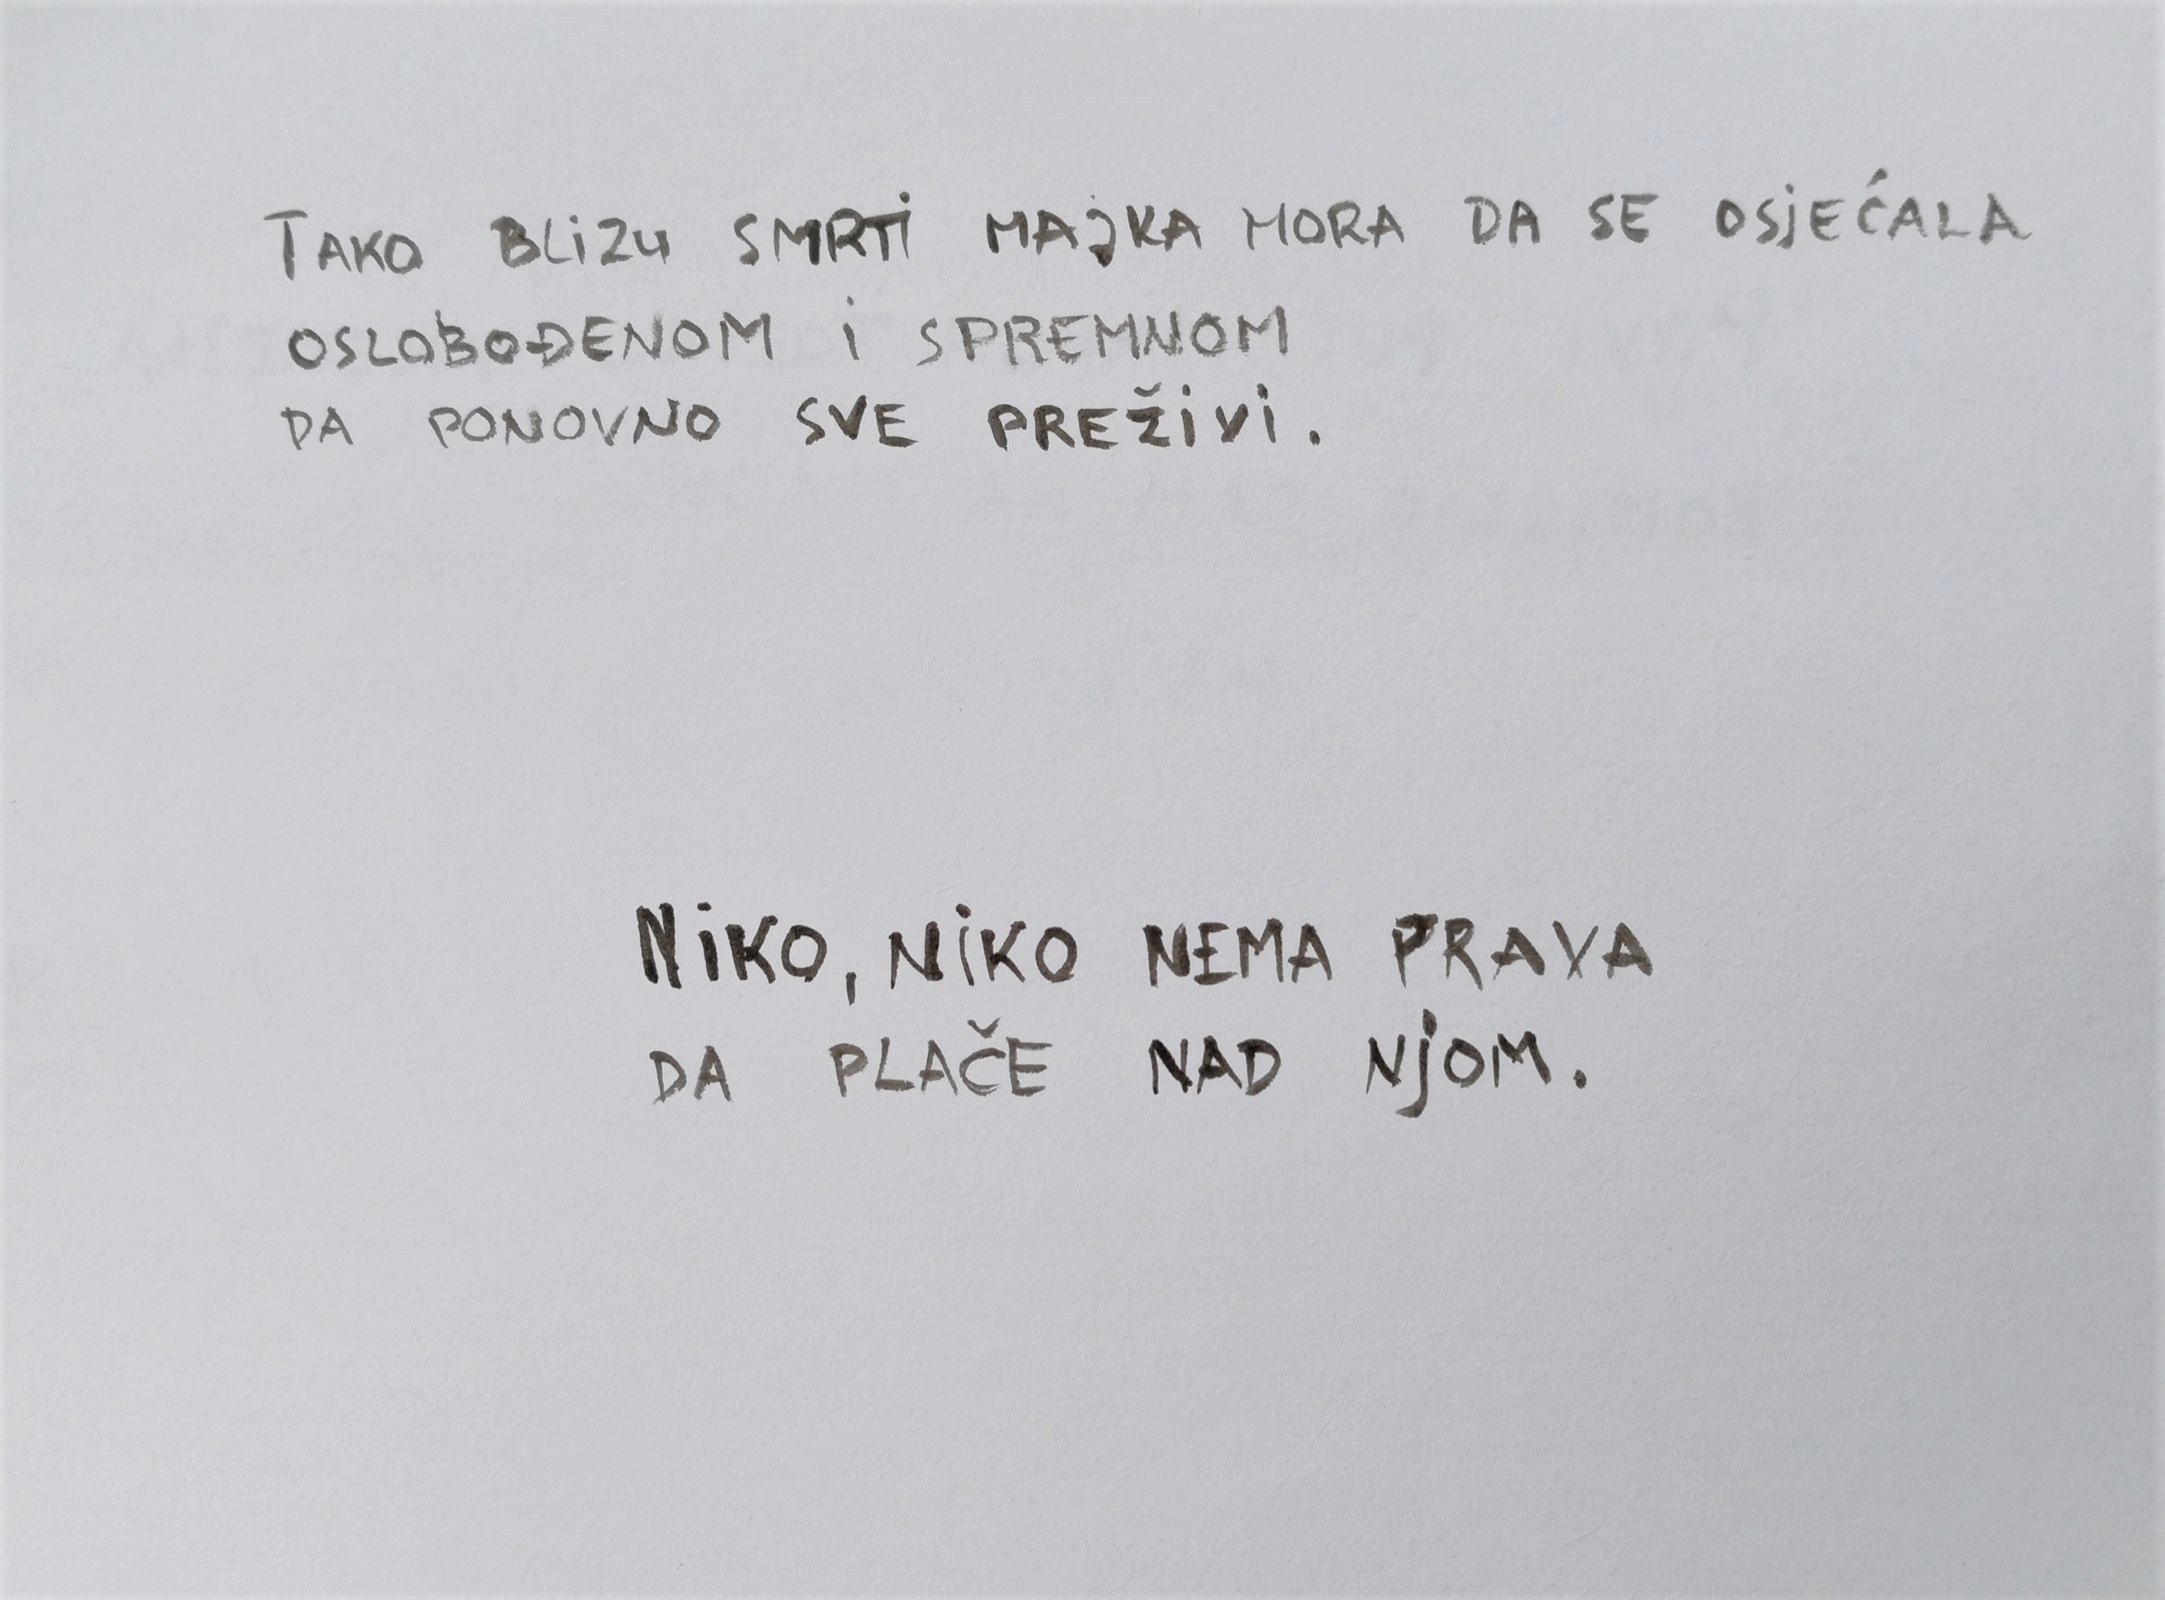 TAKO BLIZU SMRTI MAJKA MORA DA SE OSJEĆALA
OSLOBOĐENOM I SPREMNOM
DA PONOVNO SVE PREŽIVI.
NIKO, NIKO NEMA PRAVA
DA PLAČE NAD NJOM.